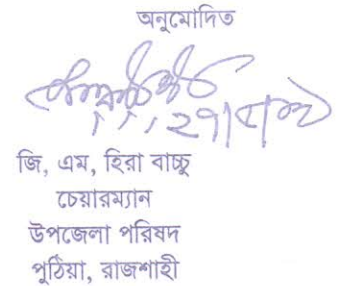 অনুমোদিত
জি, এম, হিরা বাচ্চু
চেয়ারম্যান
উপজেলা পরিষদ
পুঠিয়া, রাজশাহী